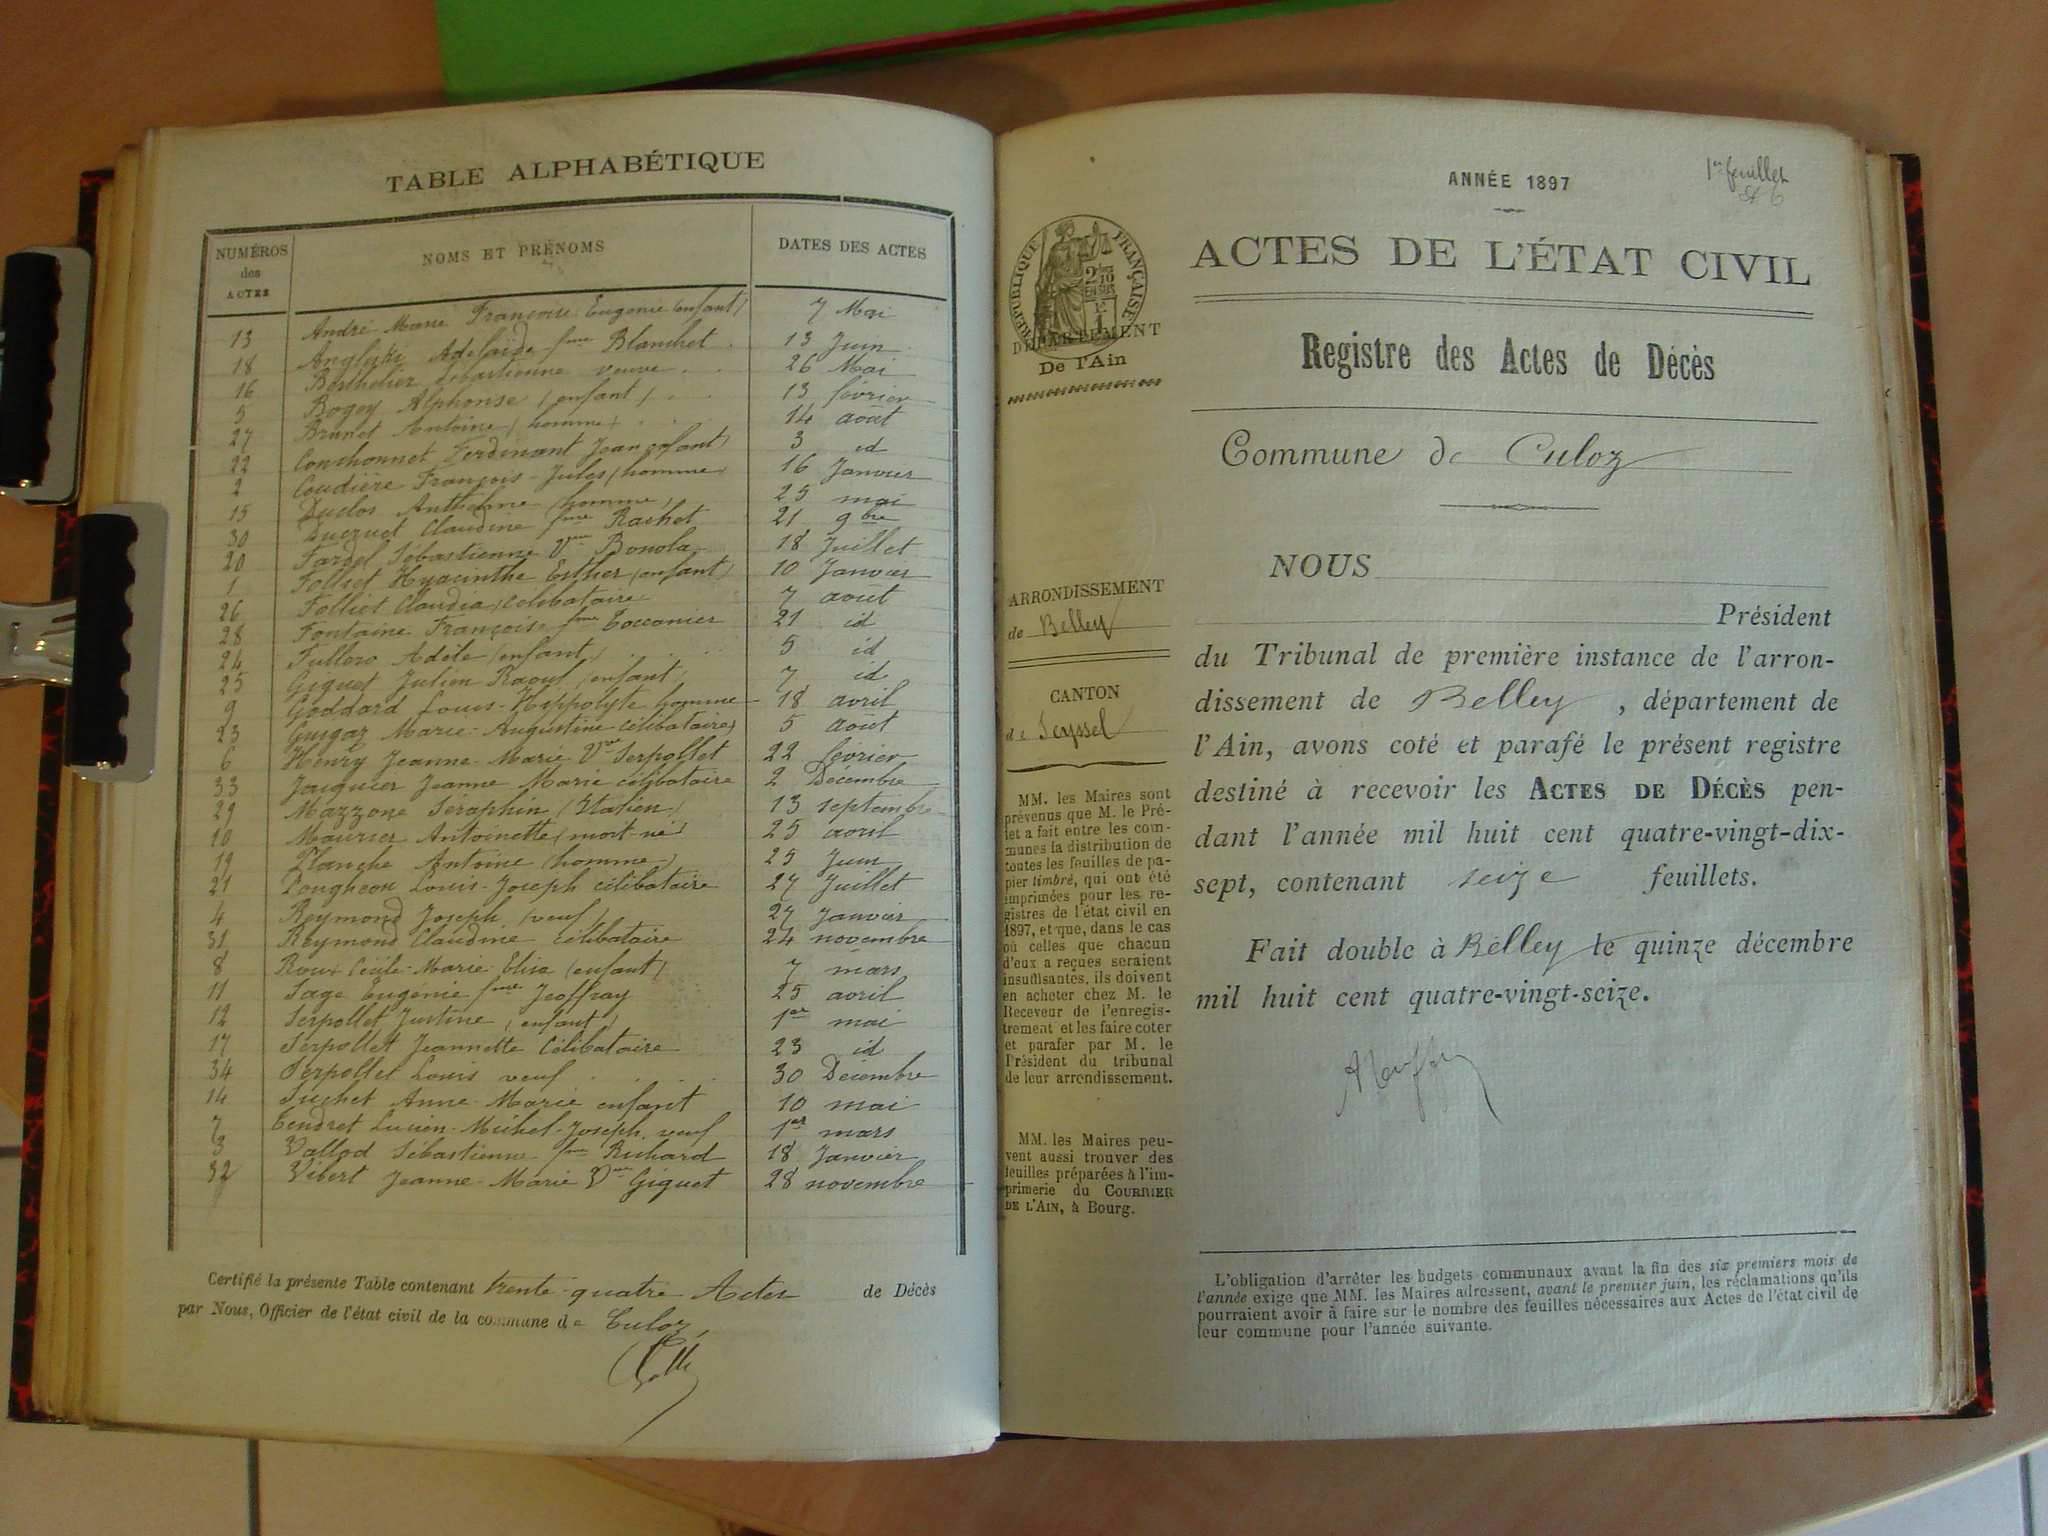 TABLE ALPHABÉTIQUE
NUMÉROS des ACTES NOMS ET PRÉNOMS DATES DES ACTES
13 André Marie Françoise Eugénie (enfant) 7 Mai
18 Adelaïde fme Blanchet 13 Juin
16 Berthelier Sébastienne veuve 26 Mai
5 Bogey Alphonse (enfant) 13 février
27 Brunet Antoine (homme) 14 août
22 Conchonnet Ferdinant Jean (enfant) 3 id
2 Coudière François-Jules (homme) 16 Janvier
15 Duclos Anthelme (homme) 25 mai
30 Ducruet Claudine fme Rachet 21 9bre
20 Fardel Sébastienne Vve Bonola 18 Juillet
1 Folliet Hyacinthe Esther (enfant) 10 Janvier
26 Folliet Claudia, célibataire 7 août
28 Fontaine Françoise fme Tocanier 21 id
24 Adèle (enfant) 5 id
25 Giguet Julien Raoul (enfant) 7 id
9 Goddard Louis-Hippolyte homme 18 avril
23 Guigaz Marie-Augustine célibataire 5 août
6 Henry Jeanne-Marie Vve Serpollet 22 février
33 Jeanne Marie célibataire 2 Décembre
29 Mazzone Séraphin (Italien) 13 septembre
10 Maurier Antoinette (mort-né) 25 avril
19 Planche Antoine (homme) 25 Juin
21 Pougheon Louis-Joseph célibataire 27 Juillet
4 Reymond Joseph (veuf) 27 Janvier
31 Reymond Claudine célibataire 24 novembre
8 Roux Cécile-Marie-Elisa (enfant) 7 mars
11 Sage Eugénie fme Jeoffray 25 avril
12 Serpollet Justine (enfant) 1er mai
17 Serpollet Jeannette Célibataire 23 id
34 Serpollet Louis veuf 30 Décembre
14 Suchet Anne-Marie enfant 10 mai
7 Tendret Lucien-Michel-Joseph, veuf 1er mars
3 Vallod Sébastienne fme Richard 18 Janvier
32 Vibert Jeanne-Marie Vve Giguet 28 novembre
Certifié la présente Table contenant trente-quatre Actes de Décès
par Nous, Officier de l'état civil de la commune de Culoz,
1er feuillet
ANNÉE 1897
RÉPUBLIQUE FRANÇAISE
2/10 EN SUS
DÉPARTEMENT
De l'Ain
ACTES DE L'ÉTAT CIVIL
Registre des Actes de Décès
Commune de Culoz
ARRONDISSEMENT
de Belley
CANTON
de Seyssel
MM. les Maires sont
prévenus que M. le Pré-
fet a fait entre les com-
munes la distribution de
toutes les feuilles de pa-
pier timbré, qui ont été
imprimées pour les re-
gistres de l'état civil en
1897, et que, dans le cas
où celles que chacun
d'eux a reçues seraient
insuffisantes, ils doivent
en acheter chez M. le
Receveur de l'enregis-
trement et les faire coter
et parafer par M. le
Président du tribunal
de leur arrondissement.
MM. les Maires peu-
vent aussi trouver des
feuilles préparées à l'im-
primerie du COURRIER
DE L'AIN, à Bourg.
NOUS
Président
du Tribunal de première instance de l'arron-
dissement de Belley, département de
l'Ain, avons coté et parafé le présent registre
destiné à recevoir les ACTES DE DÉCÈS pen-
dant l'année mil huit cent quatre-vingt-dix-
sept, contenant seize feuillets.
Fait double à Belley le quinze décembre
mil huit cent quatre-vingt-seize.
L'obligation d'arrêter les budgets communaux avant la fin des six premiers mois de
l'année exige que MM. les Maires adressent, avant le premier juin, les réclamations qu'ils
pourraient avoir à faire sur le nombre des feuilles nécessaires aux Actes de l'état civil de
leur commune pour l'année suivante.